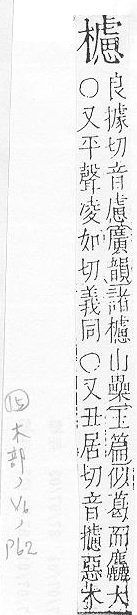 櫖
良據切音慮廣韻諸櫖山櫐玉篇似葛而麤大
〇又平聲凌如切義同〇又丑居切音攄惡木
⑮木部, V6,
P62